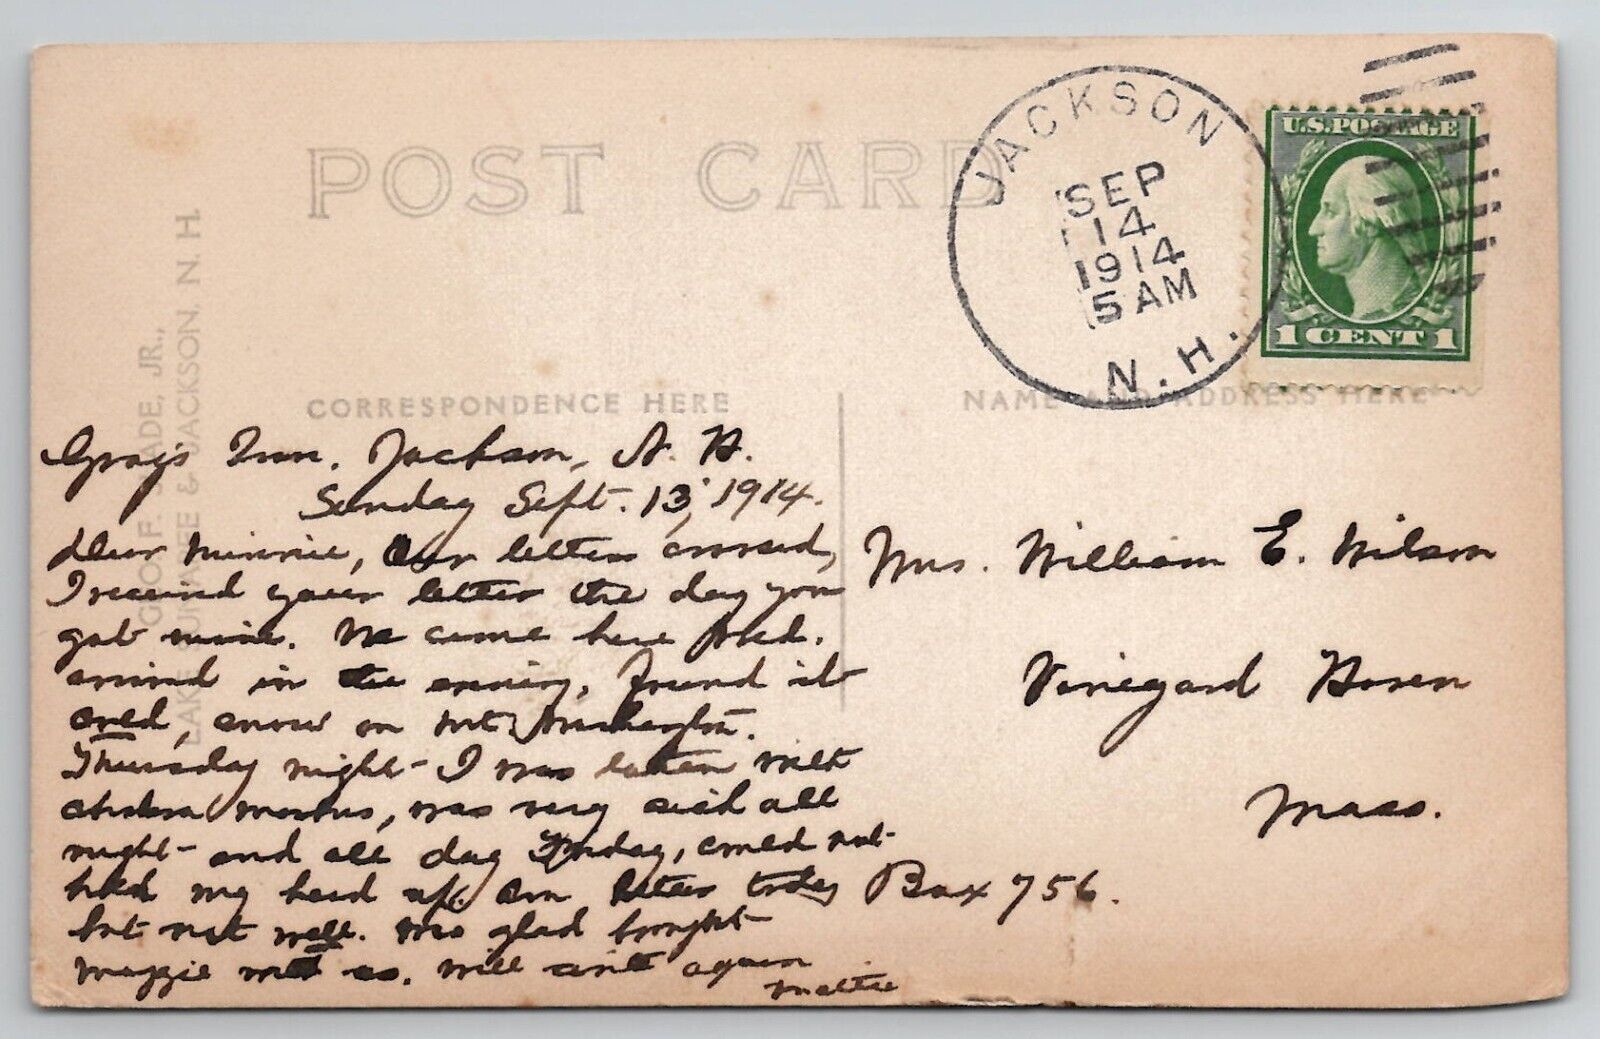 POST CARD
JACKSON
SEP
14
1914
5 AM
N.H.
U.S. POSTAGE
1 CENT 1
GEO. F. SLADE, JR.,
LAKE SUNAPEE & JACKSON, N.H.
CORRESPONDENCE HERE
NAME AND ADDRESS HERE
Gray's Inn, Jackson, N. H.
Sunday Sept. 13, 1914.
Dear Minnie, Our letters crossed,
I received your letter the day you
got mine. We came here Wed.
arrived in the evening, Found it
cold, snow on Mt. Washington.
Thursday night I was taken with
cholera morbus, was very sick all
night and all day Friday, could not
hold my head up. Am better today
but not well. Was glad brought
Maggie with us. Will write again
Mattie
Mrs. William E. Wilson
Vineyard Haven
Mass.
Box 756.